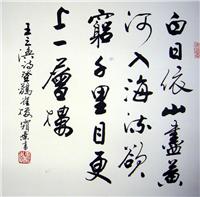 白日依山盡黃
河入海流欲
窮千里目更
上一層樓
王之渙詩登鸛雀樓 書